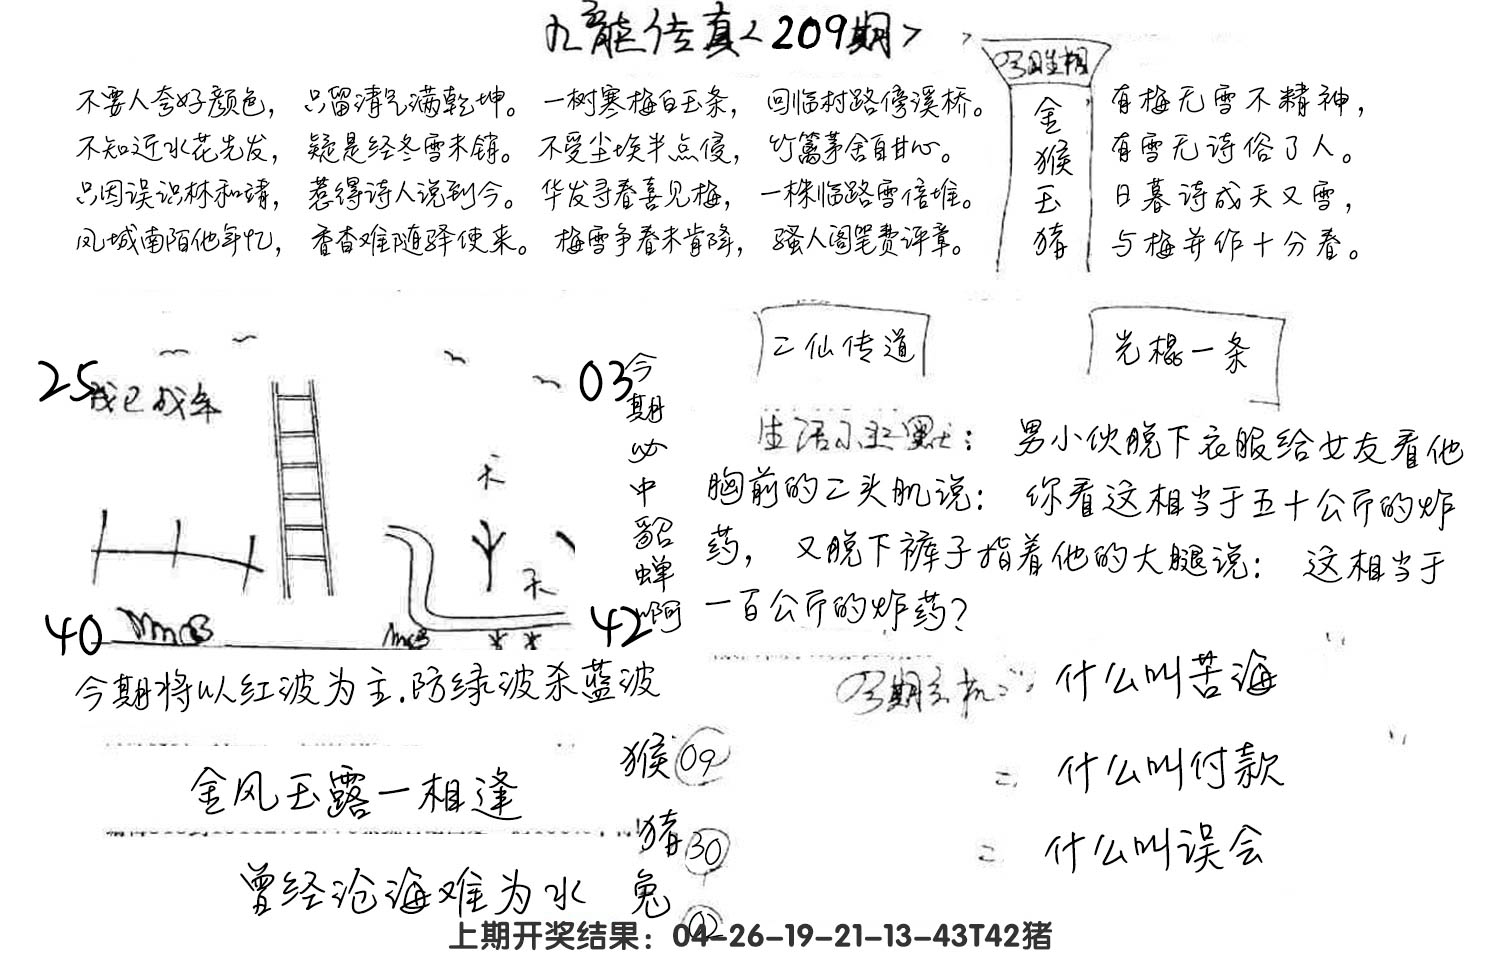 九龍传真<209期>
不要人夸好颜色，只留清气满乾坤。一树寒梅白玉条，回临村路傍溪桥。
不知近水花先发，疑是经冬雪未销。不受尘埃半点侵，竹篱茅舍自甘心。
只因误识林和靖，惹得诗人说到今。华发寻春喜见梅，一株临路雪倍堆。
凤城南陌他年忆，香香难随驿使来。梅雪争春未肯降，骚人阁笔费评章。
金猴玉猪
有梅无雪不精神，
有雪无诗俗了人。
日暮诗成天又雪，
与梅并作十分春。
二仙传道
光棍一条
25
03
今期必中貂蝉啊
40
42
今期将以红波为主.防绿波杀蓝波
男小伙脱下衣服给女友看他
胸前的二头肌说：你看这相当于五十公斤的炸
药，又脱下裤子指着他的大腿说：这相当于
一百公斤的炸药？
什么叫苦海
什么叫付款
什么叫误会
金风玉露一相逢
曾经沧海难为水
猴 09
猪 30
兔 02
上期开奖结果：04-26-19-21-13-43T42猪